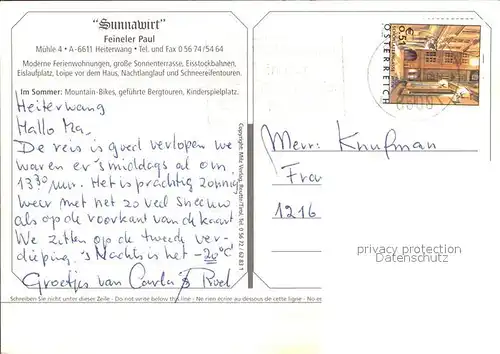 "Sunnawirt"
Feineler Paul
Mühle 4 • A-6611 Heiterwang • Tel. und Fax 0 56 74/54 64
Moderne Ferienwohnungen, große Sonnenterrasse, Eisstockbahnen,
Eislaufplatz, Loipe vor dem Haus, Nachtlanglauf und Schneereifentouren.
Im Sommer: Mountain-Bikes, geführte Bergtouren, Kinderspielplatz.
Heiterwang
Hallo Ma,
De reis is goed verlopen we
waren er 's middags al om
13 30 uur. Het is prachtig zonnig
weer met net zo veel sneeuw
als op de voorkant van de kaart
We zitten op de tweede ver-
dieping. 's Nachts is het -20°C
Groetjes van Carla & Roel
Schreiben Sie nicht unter dieser Zeile - Do not write below this line - Ne rien écrire au dessous de cette ligne - No es
Copyright: Verlag, Reutte/Tirol, Tel. 0 56 72 / 62 83 1
€ 0,51
ÖSTERREICH
Mevr: Knufman
Frau
1216
privacy protection
Datenschutz